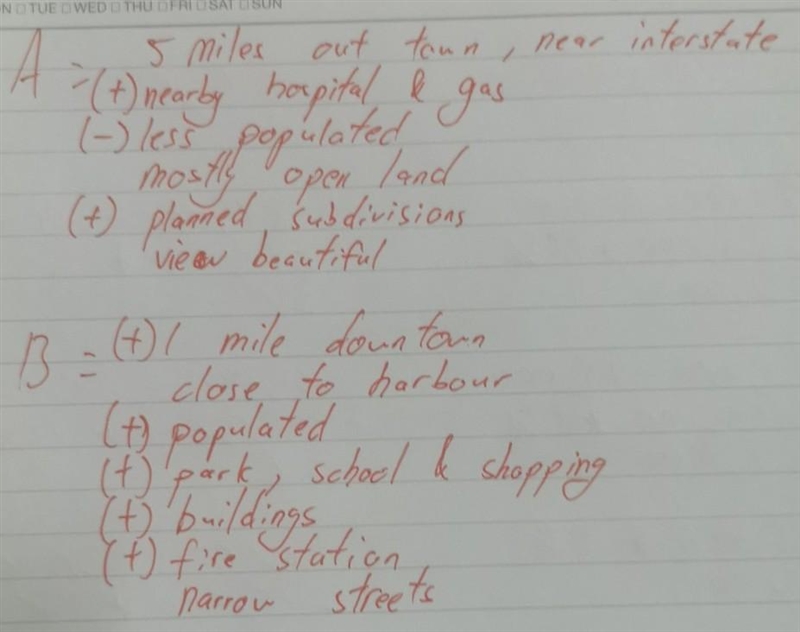 N □ TUE □ WED □ THU □ FRI □ SAT □ SUN
A = 5 miles out town, near interstate
(+) nearby hospital & gas
(-) less populated
mostly open land
(+) planned subdivisions
view beautiful
B = (+) 1 mile downtown
close to harbour
(+) populated
(+) park, school & shopping
(+) buildings
(+) fire station
narrow streets